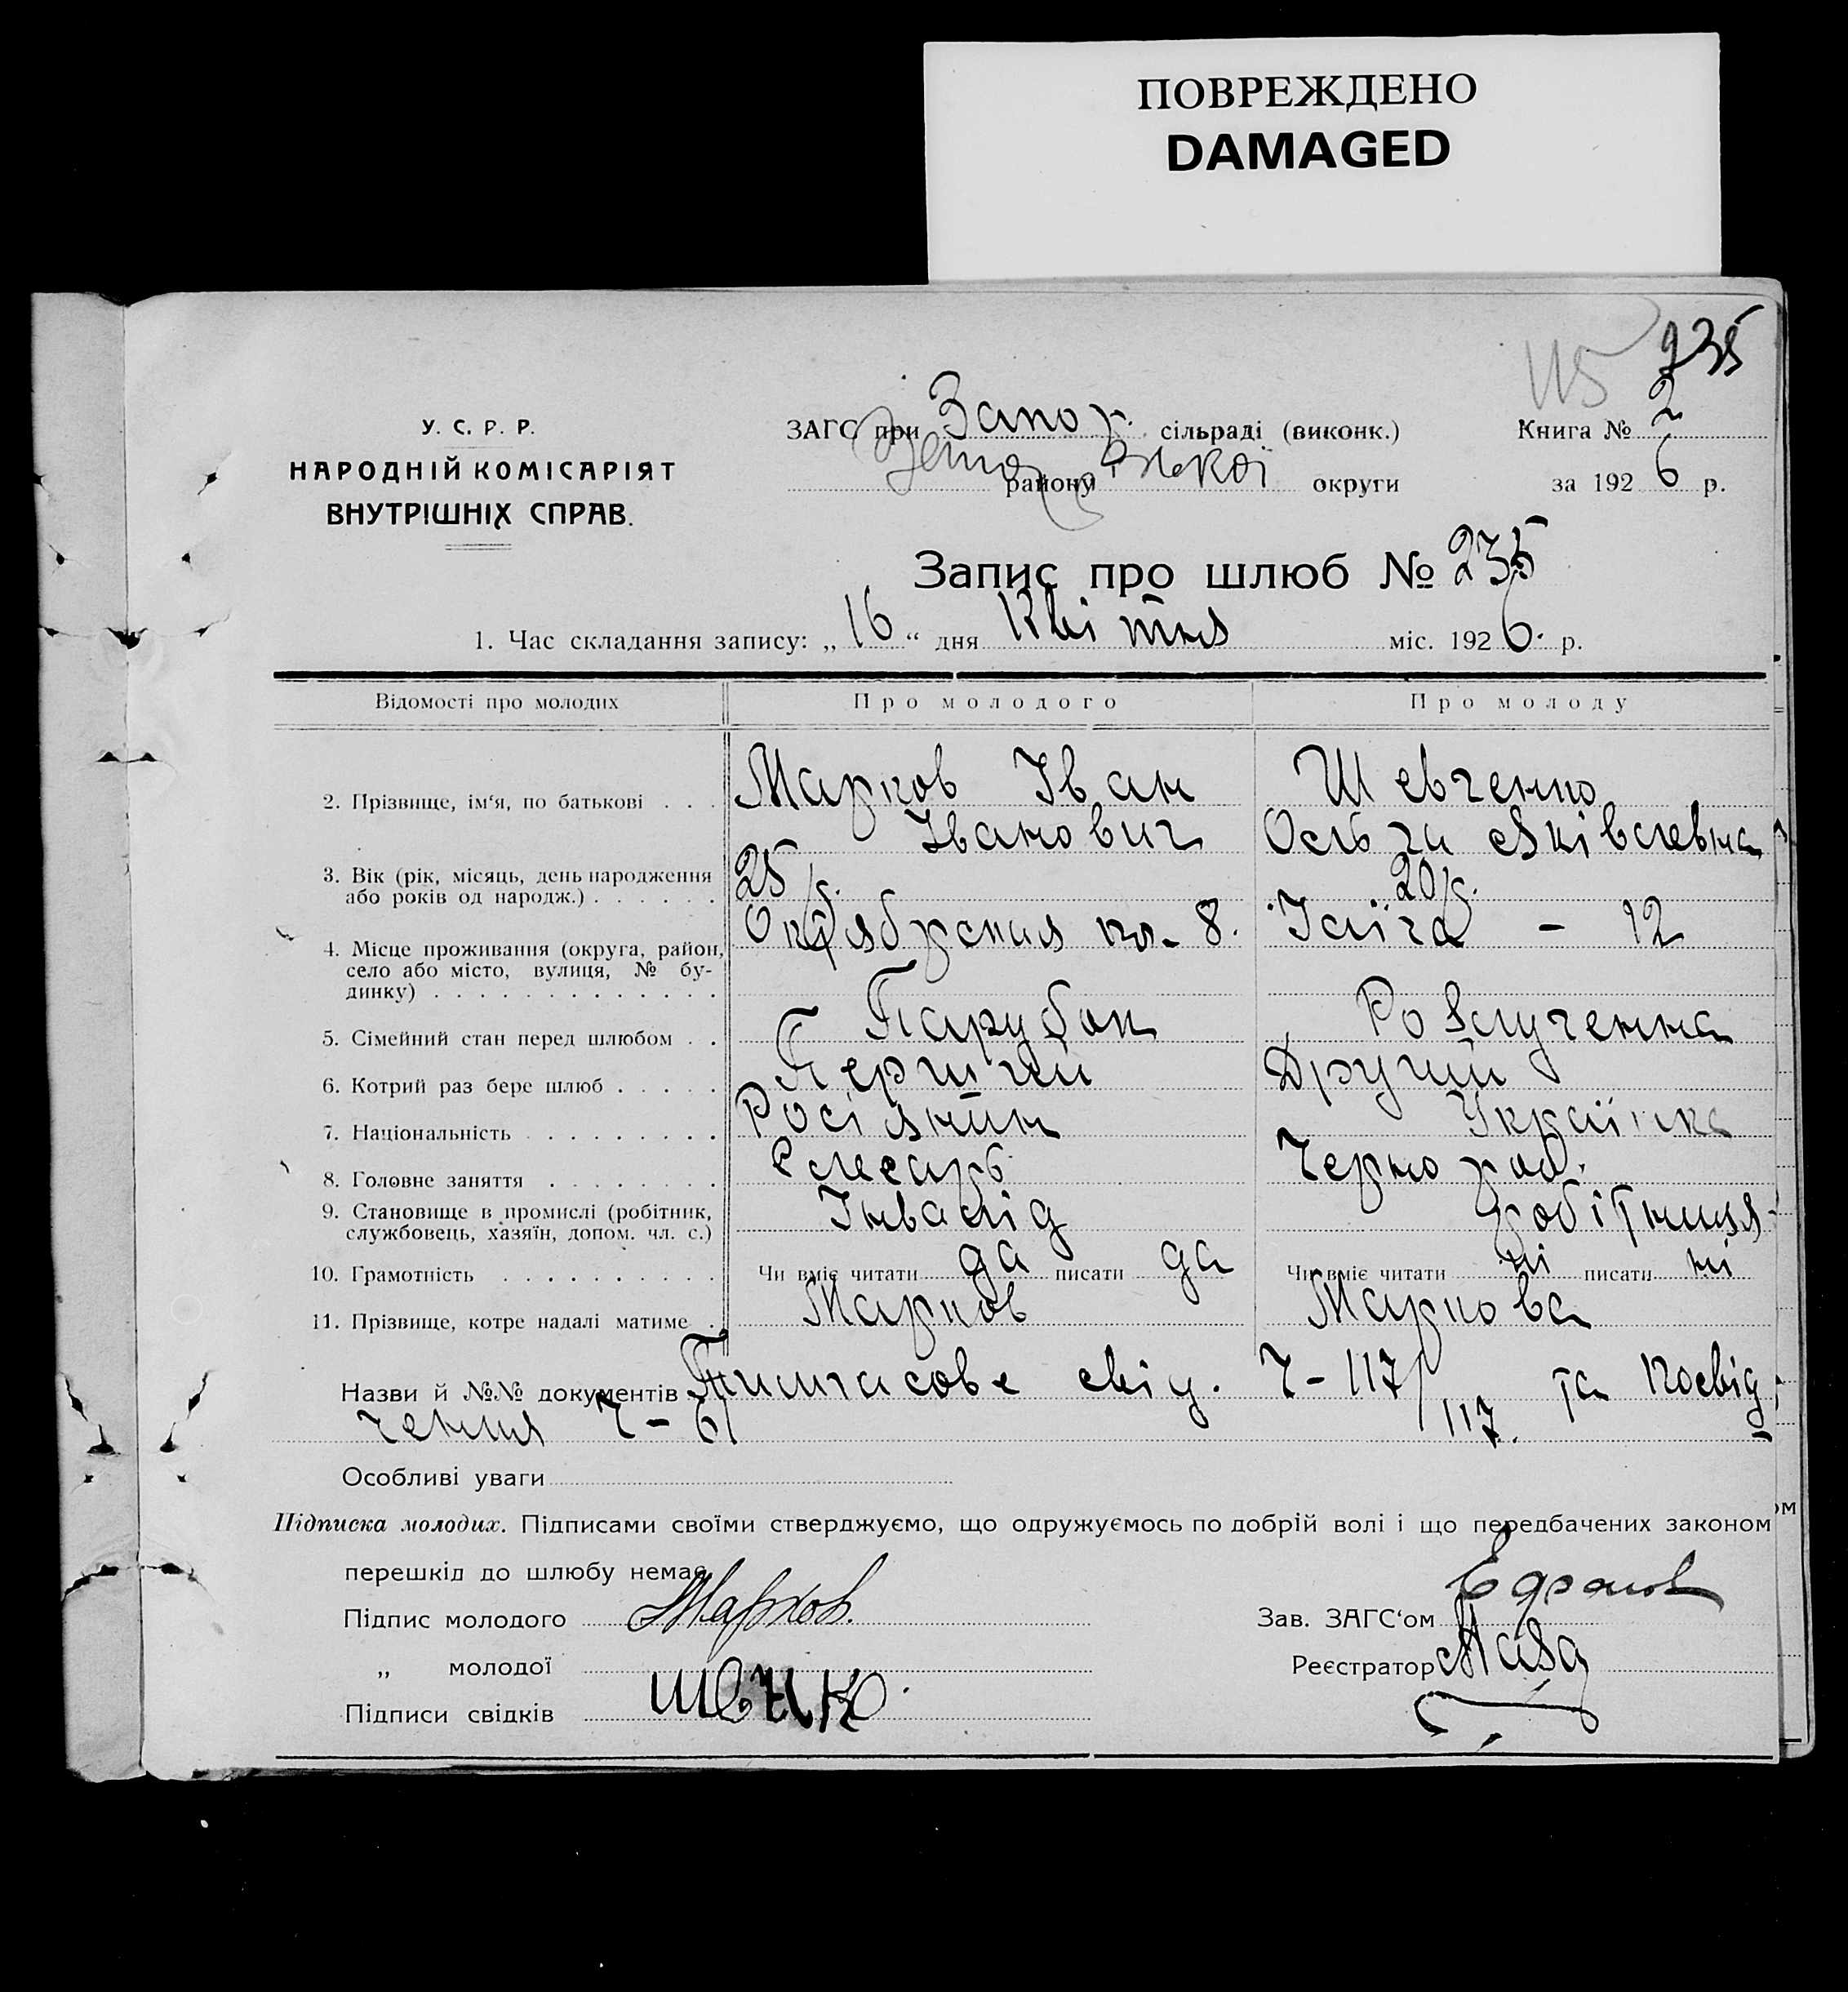 ПОВРЕЖДЕНО
DAMAGED
115 235
У. С. Р. Р.
НАРОДНІЙ КОМІСАРІЯТ
ВНУТРІШНІХ СПРАВ.
ЗАГС при Запор. сільраді (виконк.)
району округи
Книга № 2
за 1926 р.
Запис про шлюб № 235
1. Час складання запису: „16“ дня Квітня міс. 1926. р.
Відомості про молодих Про молодого Про молоду
2. Прізвище, ім‘я, по батькові . . . Марков Іван Шевченко
Іванович Ольга Яківлевна
3. Вік (рік, місяць, день народження
або років од народж.) . . . . . . 25 р. 20 р.
4. Місце проживання (округа, район,
село або місто, вулиця, № бу-
динку) . . . . . . . . . . . . . Октябрския 8. – 12
5. Сімейний стан перед шлюбом . . Парубок Розлученна
6. Котрий раз бере шлюб . . . . . Перший Другий
7. Національність . . . . . . . . . Росіянин Українка
8. Головне заняття . . . . . . . . Слесарь Чернороб.
9. Становище в промислі (робітник,
службовець, хазяїн, допом. чл. с.) Інвалід робітниця
10. Грамотність . . . . . . . . . . Чи вміє читати да писати да Чи вміє читати ні писати ні
11. Прізвище, котре надалі матиме . Марков Маркова
Назви й №№ документів Тимчасове свід. Ч–117/117. та посвід
чення Ч–61
Особливі уваги
Підписка молодих. Підписами своїми стверджуємо, що одружуємось по добрій волі і що передбачених законом
перешкід до шлюбу немає.
Підпис молодого Марков.
Зав. ЗАГС‘ом
„ молодої
Реєстратор
Підписи свідків